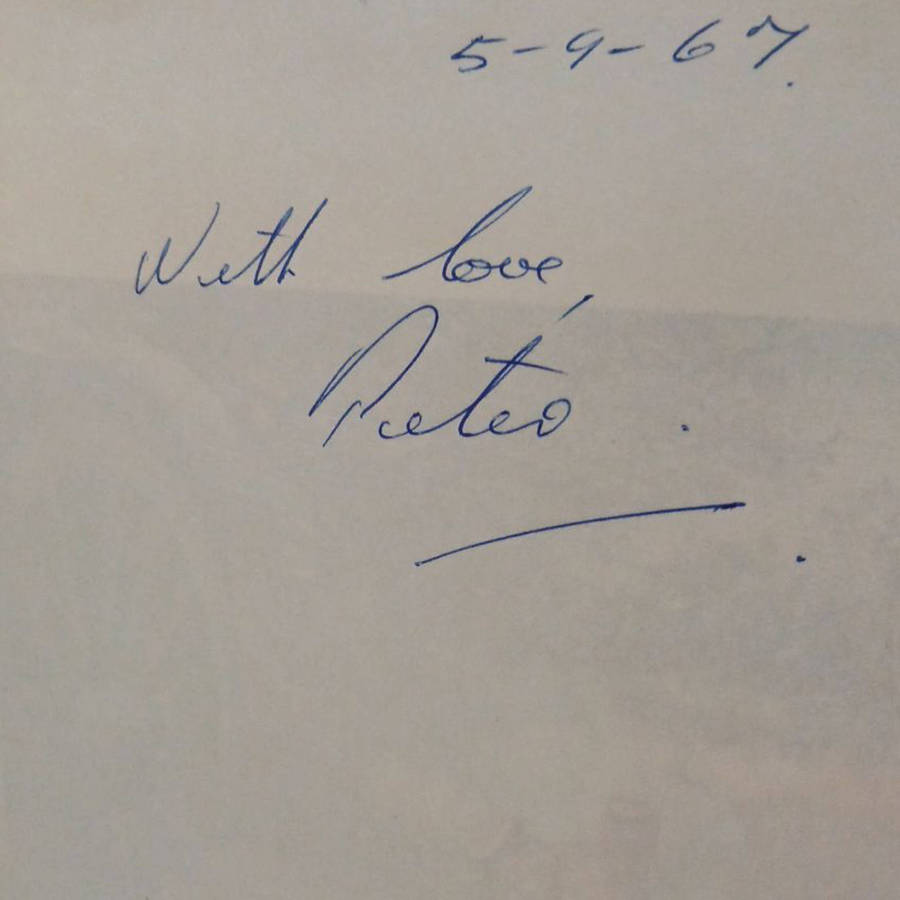 5-9-67.
With love,
Pieter.